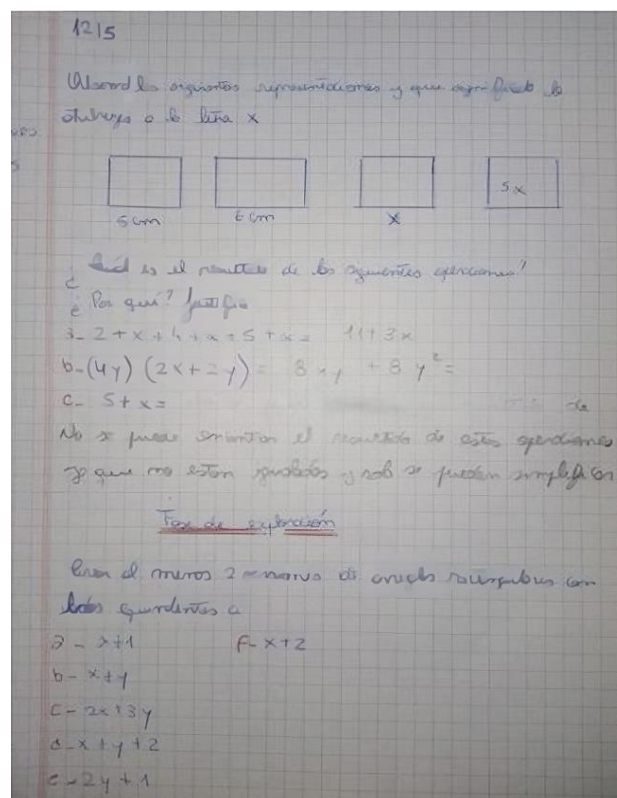 12/5
Observá las siguientes representaciones y que significado le
a la letra X
5cm 6cm X 5x
¿Cuál es el resultado de las siguientes operaciones?
¿Por qué? Justifica
a- 2+x+4+x+5+x= 11+3x
b- (4y) (2x+2y)= 8xy + 8y²=
c- 5+x=
de
No se puede encontrar el resultado de estas operaciones
ya que no estan igualadas y solo se pueden simplificar
Fase de exploración
al menos 2 de con
lados equivalentes a
a- x+1 f- x+2
b- x+y
c- 2x+3y
d- x+y+2
e- 2y+1